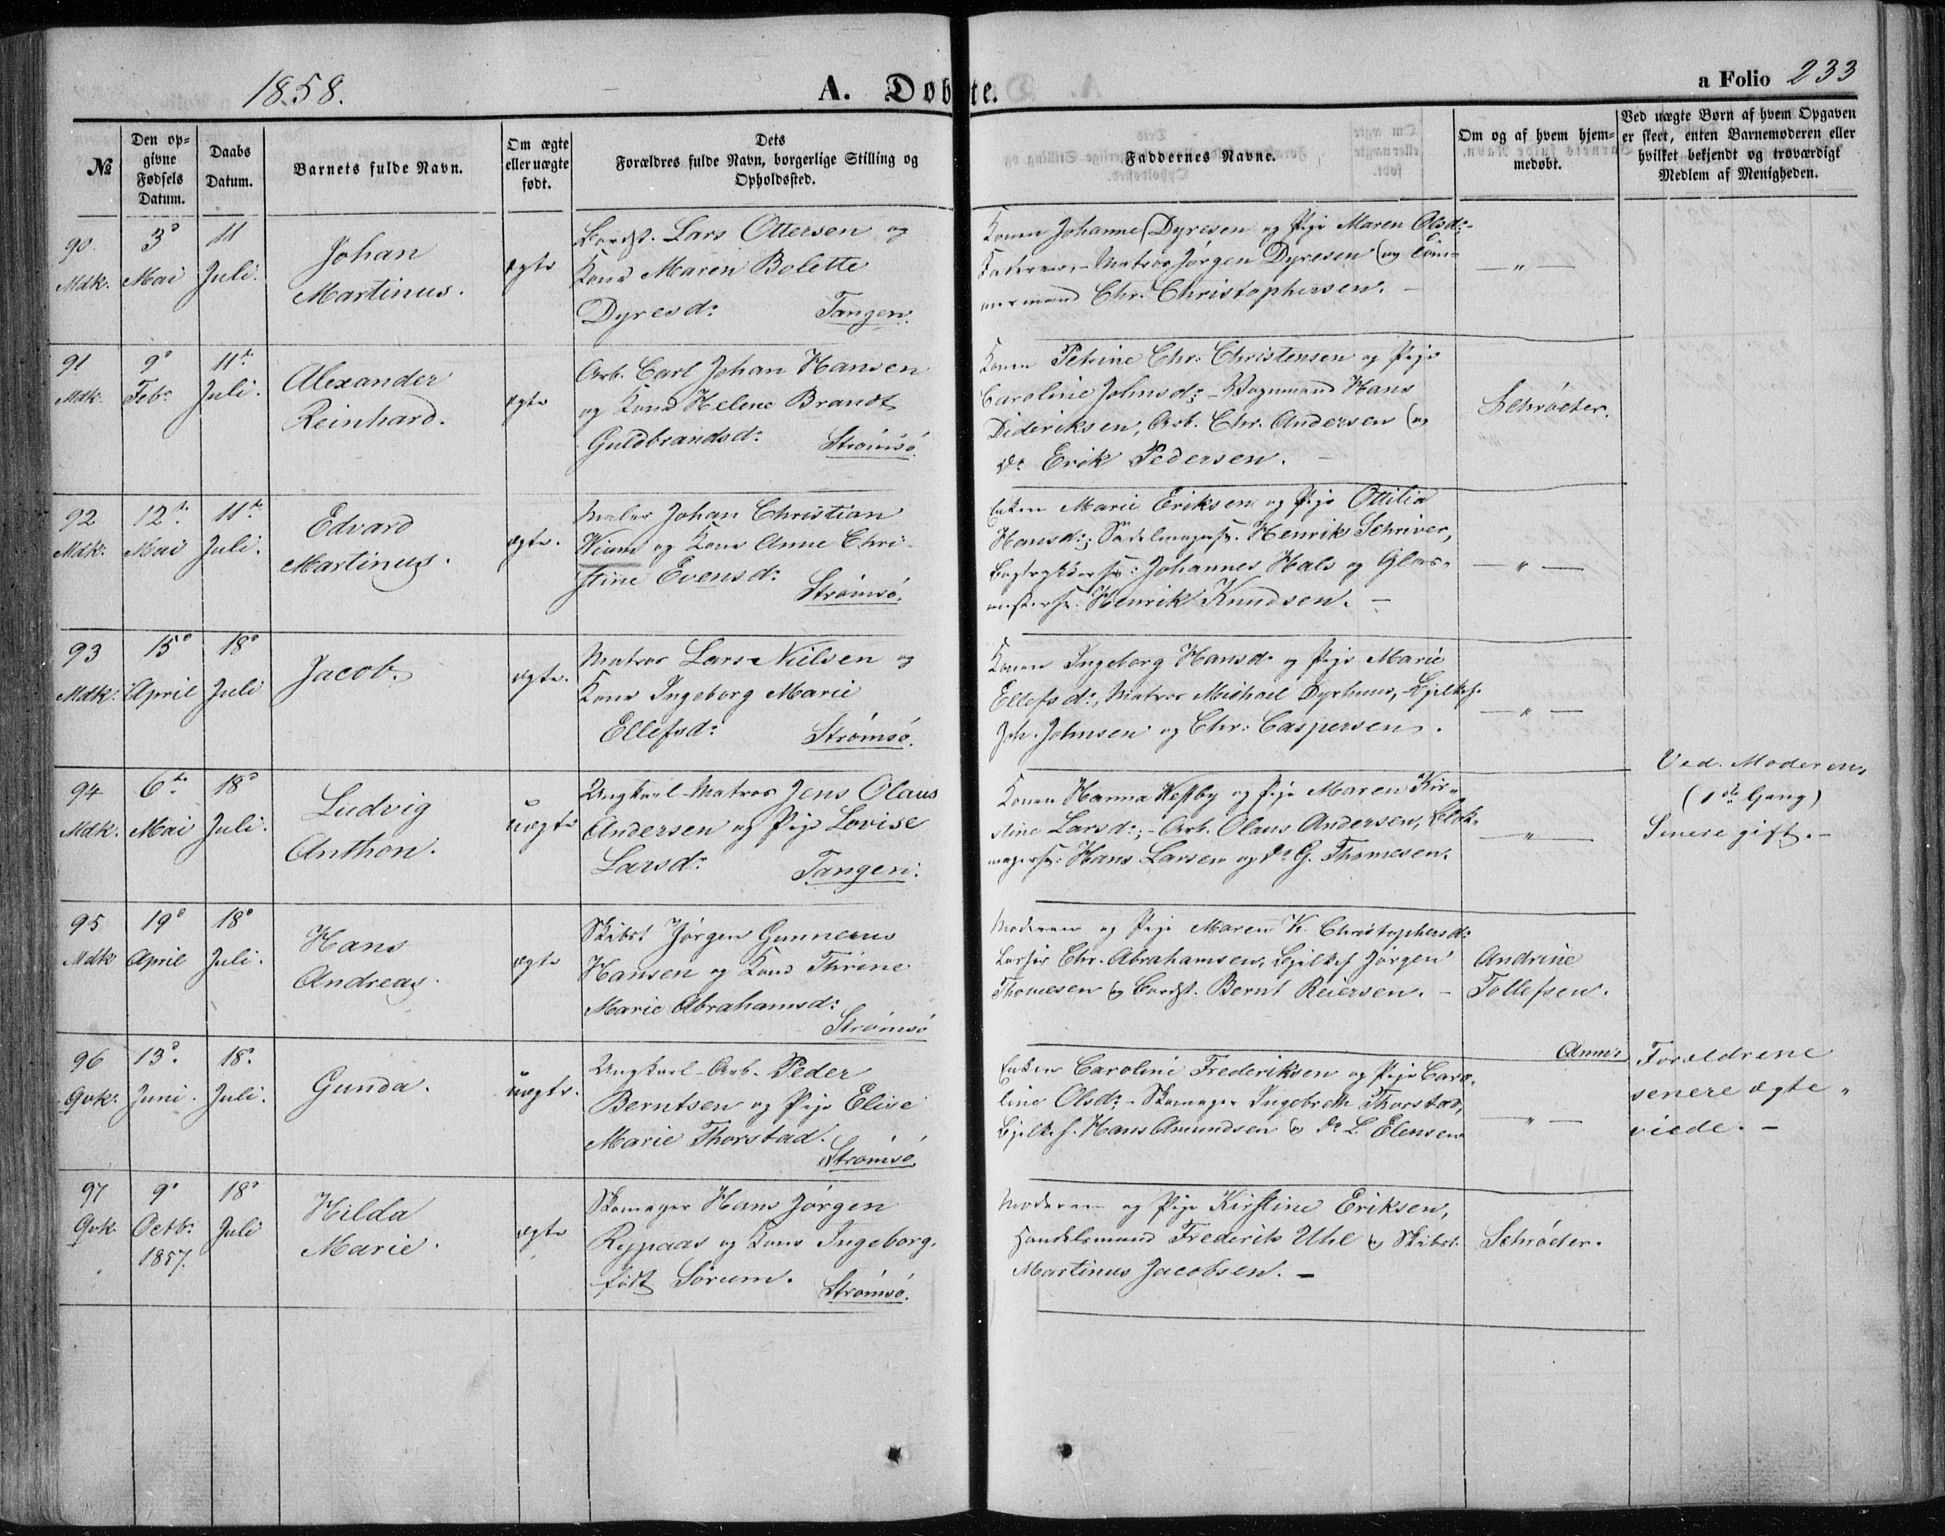 1858.
A. Døbte.
a Folio 233
№
Den op-
givne
Fødsels
Datum.
Daabs
Datum.
Barnets fulde Navn.
Om ægte
eller uægte
født.
Dets
Forældres fulde Navn, borgerlige Stilling og
Opholdssted.
Faddernes Navne.
Om og af hvem hjem-
medøbt.
Ved uægte Børn af hvem Opgaven
er skeet, enten Barnemoderen eller
hvilket bekjendt og troværdigt
Medlem af Menigheden.
90.
Mdk.
3d
Mai
11
Juli.
Johan
Martinus.
ægte
Bordst. Lars Ottersen og
Kone Maren Bolette
Dyresd: Tangen.
Konen Johanne Dyresen og Pige Maren Olsd:-
Faderen, - Matros Jørgen Dyresen og Töm-
mermand Chr. Christophersen. -
— " —
91
Mdk.
9d
Feb:
11te
Juli.
Alexander
Reinhard.
ægte
Arb. Carl Johan Hansen
og Kone Helene Brandt
Guldbrandsd: Strømsø.
Konen Petrine Chr. Christensen og Pige
Caroline Johnsd; - Vognmand Hans
Dideriksen, Arb. Chr. Andersen og
do Erik Pedersen. -
Schrøeter.
92
Mdk.
12te
Mai
11te
Juli.
Edvard
Martinus.
ægte.
Maler Johan Christian
Wium og Kone Anne Chri-
stine Evensd: Strømsø.
Enken Marie Eriksen og Pige Ottilia
Hansd:; Sadelmagersv. Henrik Schriver,
Bogtrykkersv: Johannes Hals og Glas-
mestersv. Henrik Knudsen. -
— " —
93
Mdk.
15d
April
18d
Juli
Jacob.
ægte.
Matros Lars Nielsen og
Kone Ingeborg Marie
Ellefsd: Strømsø.
Konen Ingeborg Hansd: og Pige Marie
Ellefsd:, Matros Michael Dyrhuus, Kjelkef.
Joh. Johnsen og Chr: Caspersen.
— " —
94
Mdk.
6te
Mai
18d
Juli.
Ludvig
Anthon.
uægte
Ungkarl Matros Jens Olaus
Andersen og Pige Lovise
Larsd: Tangen.
Konen Hanna Westby og Pige Maren Kir-
stine Larsd:; - Arb. Olaus Andersen, Blok-
magersv. Hans Larsen og do G. Thomesen.
— " —
Ved. Moderen,
(1ste Gang)
Senere gift. -
95
Mdk
19d
April
18d
Juli.
Hans
Andreas.
ægte
Skibst Jørgen Gunnerus
Hansen og Kone Thrine
Marie Abrahamsd:
Strømsø
Moderen og Pige Maren K. Christophersd:
Chr. Abrahamsen, Kjelkef Jørgen
Thomesen og Bordst. Bernt Reiersen. -
Andrine
Tollefsen.
96
Qvk.
13d.
Juni.
18d.
Juli.
Gunda.
uægte.
Ungkarl Arb. Peder
Berntsen og Pige Elise
Marie Thorstad.
Strømsø
Enken Caroline Frederiksen og Pige Caro-
line Olsd: - Skomager Ingebreth Thorstad,
Kjelkef. Hans Amundsen og do L. Elensen
— " —
Anm:
Foreldrene
senere ægte-
viede. -
97
Qvk.
9d
Octb:
1857.
18d
Juli
Hilda
Marie.
ægte
Skomager Hans Jørgen
Rypaas og Kone Ingeborg
født Sørum. Strømsø.
Moderen og Pige Kirstine Eriksen,
Handelsmand Frederik Uhl og Skibst.
Martinus Jacobsen. -
Schrøeter.